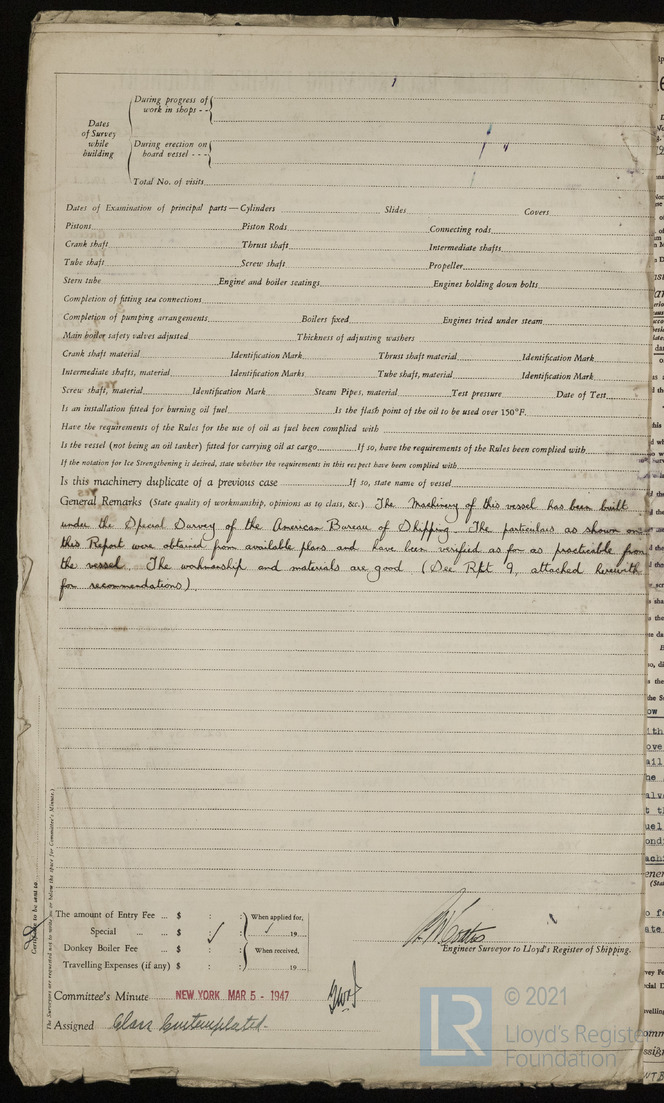 During progress of
work in shops - -
Dates
of Survey
while
building
During erection on
board vessel - - -
Total No. of visits
Dates of Examination of principal parts—Cylinders Slides Covers
Pistons Piston Rods Connecting rods
Crank shaft Thrust shaft Intermediate shafts
Tube shaft Screw shaft Propeller
Stern tube Engine and boiler seatings Engines holding down bolts
Completion of fitting sea connections
Completion of pumping arrangements Boilers fixed Engines tried under steam
Main boiler safety valves adjusted Thickness of adjusting washers
Crank shaft material Identification Mark Thrust shaft material Identification Mark
Intermediate shafts, material Identification Marks Tube shaft, material Identification Mark
Screw shaft, material Identification Mark Steam Pipes, material Test pressure Date of Test
Is an installation fitted for burning oil fuel Is the flash point of the oil to be used over 150°F.
Have the requirements of the Rules for the use of oil as fuel been complied with
Is the vessel (not being an oil tanker) fitted for carrying oil as cargo If so, have the requirements of the Rules been complied with
If the notation for Ice Strengthening is desired, state whether the requirements in this respect have been complied with
Is this machinery duplicate of a previous case If so, state name of vessel
General Remarks (State quality of workmanship, opinions as to class, &c.) The Machinery of this vessel has been built
under the Special Survey of the American Bureau of Shipping. The particulars as shown on
this Report were obtained from available plans and have been verified as far as practicable from
the vessel. The workmanship and materials are good (See Rpt 9, attached herewith
for recommendations).
The amount of Entry Fee ... $ : : When applied for,
Special ... ... $ : : 19
Donkey Boiler Fee ... $ : : When received,
Travelling Expenses (if any) $ : : 19
Engineer Surveyor to Lloyd's Register of Shipping.
Committee's Minute NEW YORK MAR 5 - 1947
Assigned Class Contemplated.
Certificate to be sent to
(The Surveyors are requested not to write on or below the space for Committee's Minute.)
LR
© 2021
Lloyd's Register
Foundation